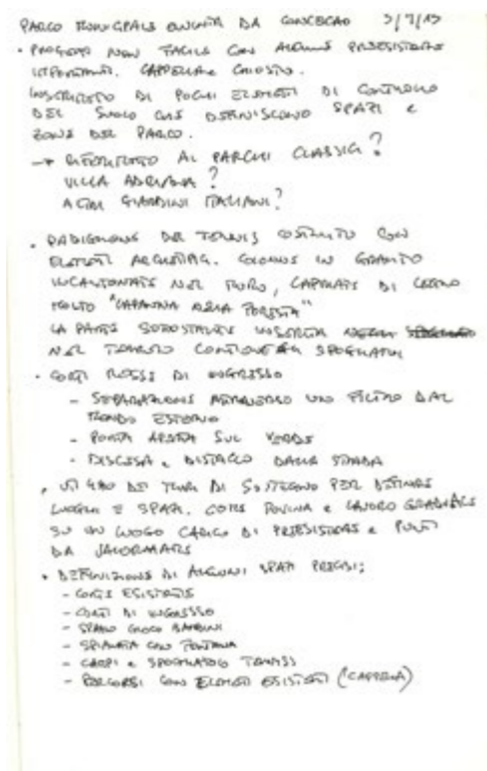 PARCO MUNICIPALE QUINTA DA CONCECAO 3/9/15
• PROGETTO NON FACILE CON ALCUNE PREESISTENZE
IMPORTANTI. CAPPELLA E CHIOSTRO.
INSERIMENTO DI POCHI ELEMENTI DI CONTROLLO
DEL SUOLO CHE DEFINISCONO SPAZI E
ZONE DEL PARCO.
→ RIFERIMENTO AI PARCHI CLASSICI?
VILLA ADRIANA?
ALTRI GIARDINI ITALIANI?
• PADIGLIONE DEL TENNIS COSTRUITO CON
ELEMENTI ARCHETIP. COLONNE IN GRANITO
INCASTONATE NEL MURO, CAPRIATE DI LEGNO
MOLTO "CAPANNA NELLA FORESTA"
LA PARTE SOTTOSTANTE INSERITA
NEL TERRENO CONTIENE GLI SPOGLIATOI
• CORTI ROSSE DI INGRESSO
- SEPARAZIONE ATTRAVERSO UN FILTRO DAL
MONDO ESTERNO
- PORTA APERTA SUL VERDE
- DISCESA E DISTACCO DALLA STRADA
• UTILIZZO DEI MURI DI SOSTEGNO PER DEFINIRE
LUOGHI E SPAZI. COME ROVINA E LAVORO GRADUALE
SU UN LUOGO CARICO DI PREESISTENZE E PUNTI
DA VALORIZZARE
• DEFINIZIONE DI ALCUNI SPAZI PRECISI:
- CORTE ESISTENTE
- CORTI DI INGRESSO
- SPAZIO GIOCO BAMBINI
- SPIANATA CON FONTANA
- CAMPI E SPOGLIATOIO TENNIS
- PERCORSI CON ELEMENTI ESISTENTI (CAPPELLA)